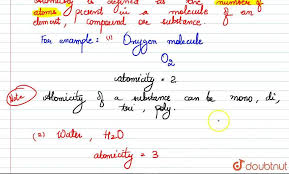 Atomicity is defined as the number of
atoms present in a molecule of an
element, compound or substance.
For example: (1) Oxygen molecule
O2
atomicity = 2
Note Atomicity of a substance can be mono, di,
tri, poly.
(2) Water, H2O
atomicity = 3
doubtnut